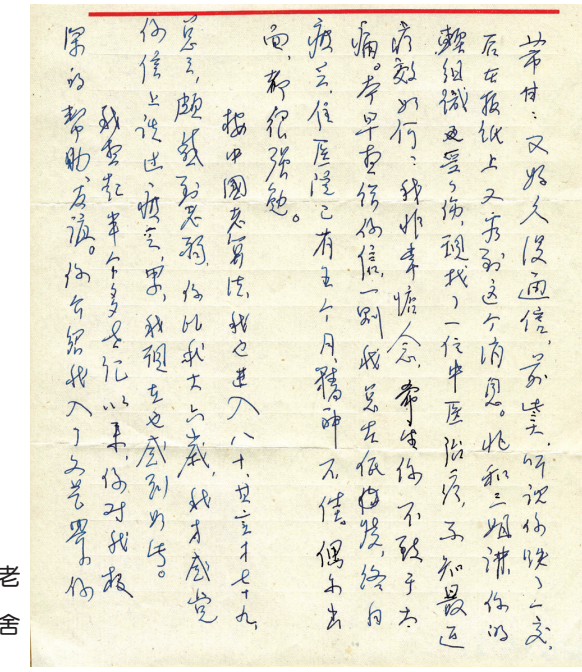 芾甘：又好久没通信，前些天，听说你跌了一交，
后在报纸上又看到这个消息。和三姐讲，你的
软组织受了伤，现找了一位中医治疗，不知最近
疗效如何？我非常惦念，希望你不致于太
痛。本早想给你信，一则我总在低烧，终日
疲乏，住医院已有五个月，精神不佳。偶尔出
面，都很强勉。
按中國老算法，我也进入八十，其实才七十九，
总之，颇感到老弱，你比我大六岁，我才感觉
你信上说过疲乏，累，我现在也感到如此。
我想起半个多世纪以来，你对我极
深的帮助、友谊。你介绍我入了文艺界，你
老舍